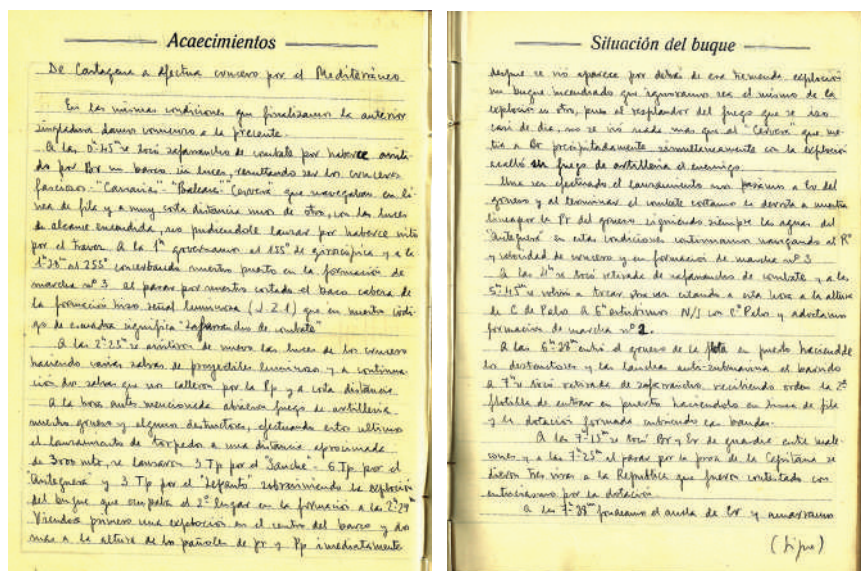 Acaecimientos
De Cartagena a efectuar crucero por el Mediterráneo.
En las mismas condiciones que finalizamos la anterior
singladura damos comienzo a la presente.
A las 0ʰ45ᵐ se tocó zafarrancho de combate por haberce avista-
do por Br un barco sin luces, resultando ser los cruceros
facciosos "Canarias" "Baleares" Cervera" que navegaban en lí-
nea de fila y a muy corta distancia unos de otro, con las luces
de alcance encendida, no pudiendole lanzar por haberce visto
por el traves. A la 1ʰ governamos al 155° de giroscópica y a la
al 255° concerbando nuestro puesto en la formación de
marcha nº 3 al pasar por nuestro costado el buco cabeza de
la formación hizo señal luminosa (J.Z.1) que en nuestro códi-
go de escuadra significa "zafarrancho de combate"
A las 2ʰ25ᵐ se avistaron de nuevo las luces de los cruceros
haciendo varias salvas de proyectiles luminoso y a continua-
ción dos salvas que no calleron por la Pp y a corta distancia
A la hora antes mencionada abrieron fuego de artilleria
nuestro grueso y algunos destructores, efectuando esto ultimos
el lanzamiento de torpedos a una distancia aproximada
de 3000 mts, se lanzaron 3 Tp por el "Sanche - 6 Tp por el
"Antequera" y 3 Tp por el "Lepanto" sobreviniendo la explosión
del buque que ocupaba el 2º lugar en la formación a las 2ʰ29ᵐ
Viendose primero una explosión en el centro del barco y dos
mas a la altura de los pañoles de pr y Pp inmediatamente
Situación del buque
despues se vió aparece por detras de esa tremenda explosión
un buque incendiado que ignoramos sea el mismo de la
explosión u otro, pues al resplandor del fuego que se izo
casi de dia, no se vió nada mas que al "Cervera" que me-
tia a Br precipitadamente simultaneamente con la explosión
acalló su fuego de artilleria el enemigo.
Una vez efectuado el lanzamiento nos pasamos a Er del
grueso y al terminar el combate cortamos la derrota a nuestra
linea por la Pr del grueso siguiendo siempre las aguas del
"Antequera" en estas condiciones continuamos navegando al Rº
y velocidad de crucero y en formación de marcha nº 3
A las 4ʰ se tocó retirada de zafarrancho de combate y a las
5ʰ45ᵐ se volvió a tocar otra vez estando a esta hora a la altura
de C de Palo. A 6ʰ estuvimos N/S con Cº Palo y adoptamos
formación de marcha nº 2.
A las 6ʰ28ᵐ entró el grueso de la flota en puerto haciendole
los destructores y las lanchas anti-submarina el barrido
A 7ʰ se tocó retirada de zafarrancho, recibiendo orden la 2ª
flotilla de entrar en puerto haciendolo en linea de fila
y la dotación formada cubriendo las bandas.
A las 7ʰ15ᵐ se tocó Br y Er de guardia entre male-
cones y a las 7ʰ25ᵐ al pasar por la proa de la Capitana se
dieron tres vivas a la Republica que fueron contestado con
entusiasmo por la dotación.
A las 7ʰ28ᵐ fondeamos el ancla de Er y amarramos
(Sigue)